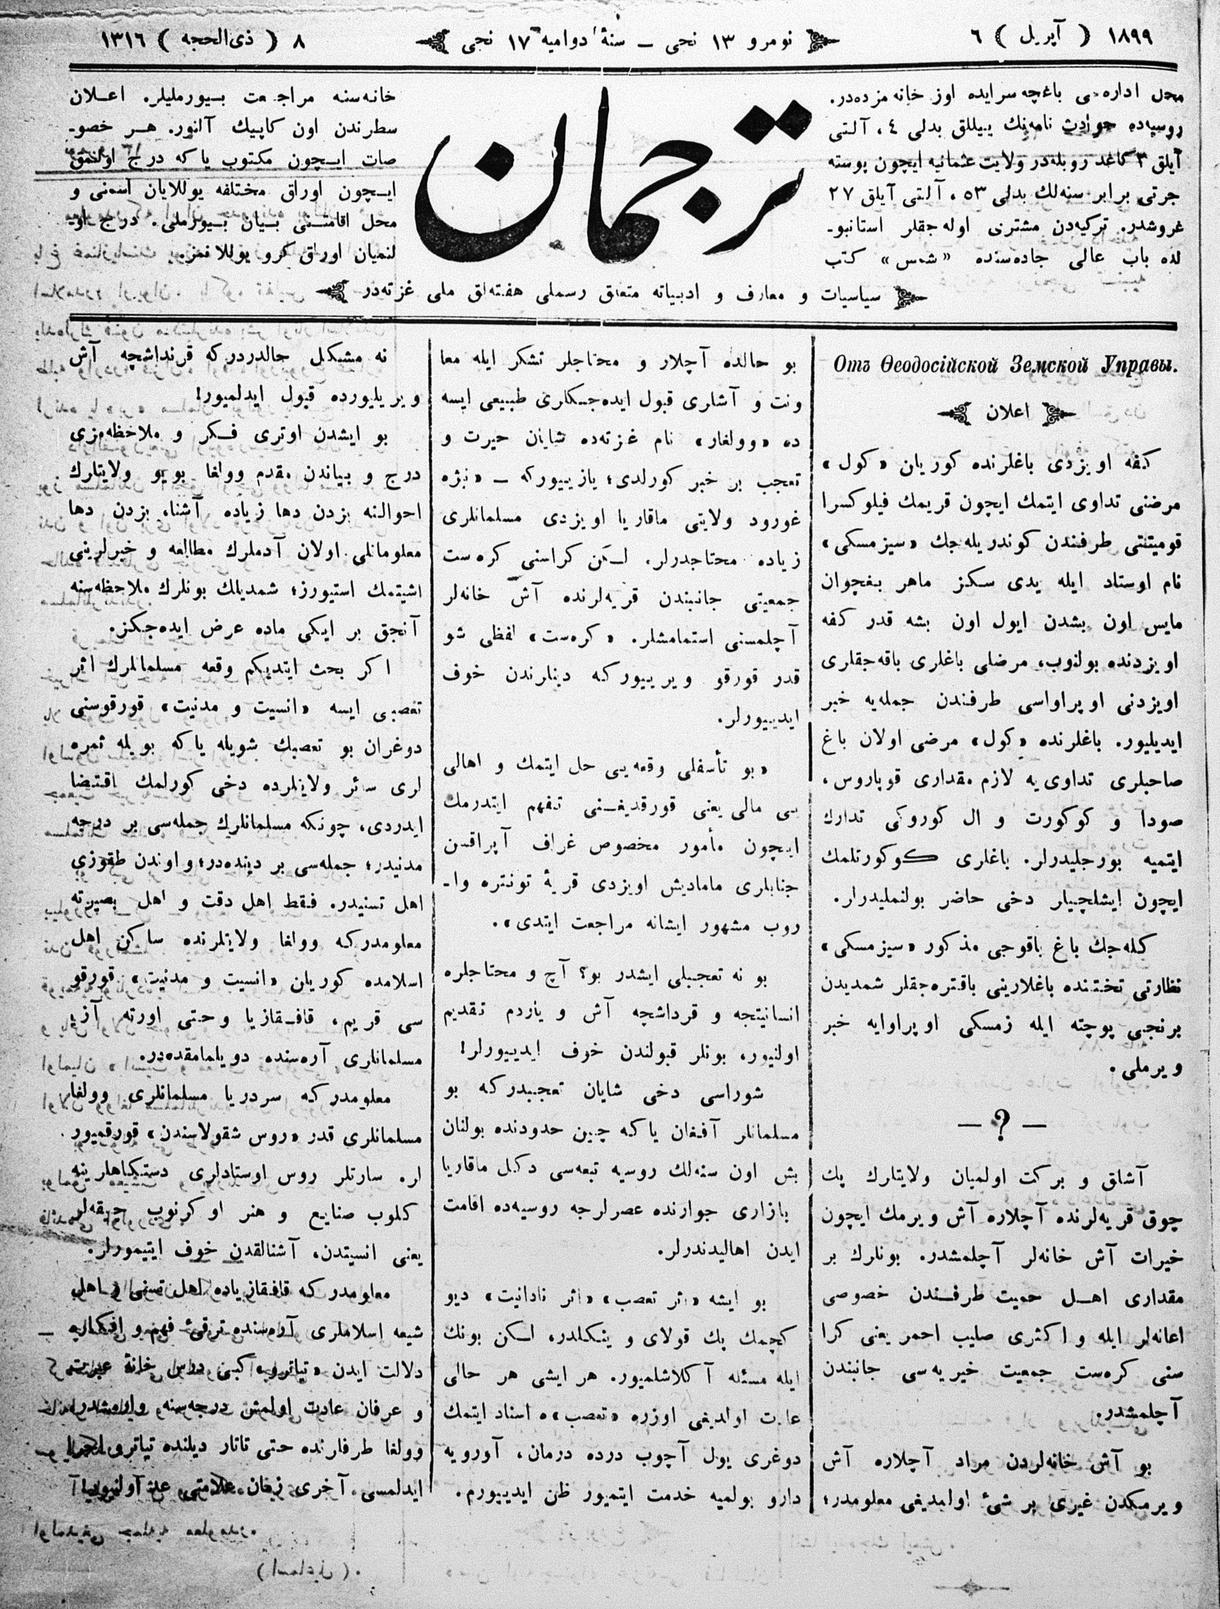 ١٨٩٩ ( آپریل ) ٦
نومرو ١٣ نجی — سنۀ دوامیه ١٧ نجی
٨ ( ذی الحجه ) ١٣١٦
محل اداره‌سی باغچه سرایده اوز خانه مزده‌در.
روسیه‌ده حوادث نامه‌نك ییللق بدلی ٤، آلتی
آیلق ٣ كاغد روبله‌در ولایت عثمانیه ایچون پوسته
جرتی برابر سنه‌لك بدلی ٥٣، آلتی آیلق ٢٧
غروشدر. تركیه‌دن مشتری اوله‌جقلر استانبو-
لده باب عالی جاده‌سنده «شمس» كتب
ترجمان
خانه‌سنه مراجعت بیورملیلر. اعلان
سطرندن اون كاپیك آلنور. هر خصو-
صات ایچون مكتوب یاكه درج اولنمق
ایچون اوراق مختلفه یوللایان اسمنی و
محل اقامتنی بیان بیورملی. درج او-
لنمیان اوراق كرو یوللانمز.
سیاسیات و معارف و ادبیاته متعلق رسملی هفته‌لق ملی غزته‌در
Отъ Ѳеодосійской Земской Управы.
اعلان
كفه اویزدی باغلرنده كوریان «كول»
مرضنی تداوی ایتمك ایچون قریمك فیلوكسرا
قومیتتی طرفندن كوندریله‌جك «سیزمسكی»
نام اوستاد ایله یدی سكز ماهر بغچوان
مایس اون بشدن ایول اون بشه قدر كفه
اویزدنده بولنوب، مرضلی باغلری باقه‌جقلری
اویزدنی اوپراواسی طرفندن جمله‌یه خبر
ایدیلیور. باغلرنده «كول» مرضی اولان باغ
صاحبلری تداوی‌یه لازم مقداری قوپاروس،
صودا و كوكورت و ال كوروكی تدارك
ایتمیه بورجلیدرلر. باغلری كوكورتلمك
ایچون ایشلچیلر دخی حاضر بولنملیدرلر.
كله‌جك باغ باقوجی مذكور «سیزمسكی»
نظارتی تختنده باغلارینی باقتره‌جقلر شمدیدن
برنجی پوچته ایله زمسكی اوپراوایه خبر
ویرملی.
— ؟ —
آشلق و بركت اولمیان ولایتلرك پك
چوق قریه‌لرنده آچلاره آش ویرمك ایچون
خیرات آش خانه‌لر آچلمشدر. بونلرك بر
مقداری اهل حمیت طرفندن خصوصی
اعانه‌لر ایله و اكثری صلیب احمر یعنی كرا
سنی كره‌ست جمعیت خیریه‌سی جانبندن
آچلمشدر.
بو آش خانه‌لردن مراد آچلاره آش
ویرمكدن غیری بر شئ اولمدیغی معلومدر؛
بو حالده آچلار و محتاجلر تشكر ایله معا
ونت و آشلری قبول ایده‌جكلری طبیعی ایسه
ده «وولغار» نام غزته‌ده شایان حیرت و
تعجب بر خبر كورلدی؛ یازییوركه — «نیژه
غورود ولایتی ماقاریا اویزدی مسلمانلری
زیاده محتاجدرلر. لكن كراسنی كره‌ست
جمعیتی جانبندن قریه‌لرنده آش خانه‌لر
آچلمسنی استمامشلر. «كره‌ست» لفظی شو
قدر قورقو ویرییوركه دینلرندن خوف
ایدییورلر.
«بو تأسفلی وقعه‌یی حل ایتمك و اهالی
یی مالی یعنی قورقدیغـنی تفهم ایتدرمك
ایچون مأمور مخصوص غراف آپراقسن
جنابلری مامادیش اویزدی قریۀ تونتره وا-
روب مشهور ایشانه مراجعت ایتدی».
بو نه تعجبلی ایشدر بو؟ آچ و محتاجلره
انسانیتجه و قرداشچه آش و یاردم تقدیم
اولنیور، بونلر قبولندن خوف ایدییورلر!
شوراسی دخی شایان تعجبدركه بو
مسلمانلر آفغان یاكه چین حدودنده بولنان
بش اون سنه‌لك روسیه تبعه‌سی دكل ماقاریا
بازاری جوارنده عصرلرجه روسیه‌ده اقامت
ایدن اهالیدندرلر.
بو ایشه «اثر تعصب» «اثر نادانیت» دیو
كچمك پك قولای و یتكلدر، لكن بونك
ایله مسئله آكلاشلمیور. هر ایشی هر حالی
عادت اولدیغی اوزره «تعصب»ه اسناد ایتمك
دوغری یول آچوب درده درمان، آورویه
دارو بولمیه خدمت ایتمیور ظن ایدییورم.
نه مشكل حالدردركه قرنداشچه آش
ویریلیورده قبول ایدلمیور!
بو ایشدن اوتری فكر و ملاحظه‌مزی
درج و بیاندن مقدم وولغا بویو ولایتلرك
احوالنه بزدن دها زیاده آشنا، بزدن دها
معلوماتلی اولان آدملرك مطالعه و خبرلرینی
اشیتمك استیورز؛ شمدیلك بونلرك ملاحظه‌سنه
آنجق بر ایكی ماده عرض ایده‌جكز.
اكر بحث ایتدیكم وقعه مسلمانلرك اثر
تعصبی ایسه «انسیت و مدنیت» قورقوسنی
دوغران بو تعصبك شویله یاكه بویله ثمره
لری سائر ولایتلرده دخی كورلمك اقتضا
ایدردی، چونكه مسلمانلرك جمله‌سی بر درجه
مدنیدر؛ جمله‌سی بر دینده‌در؛ و اوندن طقوزی
اهل تسنیدر. فقط اهل دقت و اهل بصیرته
معلومدركه وولغا ولایتلرنده ساكن اهل
اسلامده كوریلن «انسیت و مدنیت» قورقو
سی قریم، قافقازیا وحتی اورته آزیا
مسلمانلری آره‌سنده دویلمامقده‌در.
معلومدركه سردریا مسلمانلری وولغا
مسلمانلری قدر «روس شقولاسندن» قورقمیور
لر. سارتلر روس اوستادلری دستكاهلرینه
كلوب صنایع و هنر اوكرنوب چیقه‌لر
یعنی انسیتدن، آشنالقدن خوف ایتیمورلر.
معلومدركه قافقازیاده اهل تسنی و اهل
شیعه اسلاملری آره‌سنده ترقئ فهم و افكاره
دلالت ایدن «تیاترو» كبی درس خانۀ عبرت
و عرفان عادت اولمش درجه‌سنه واره‌شدر.
وولغا طرفلرنده حتی تاتار دیلنده تیاترو اجرا
ایدلمسی آخری زمان علامتی عد اولنیور!